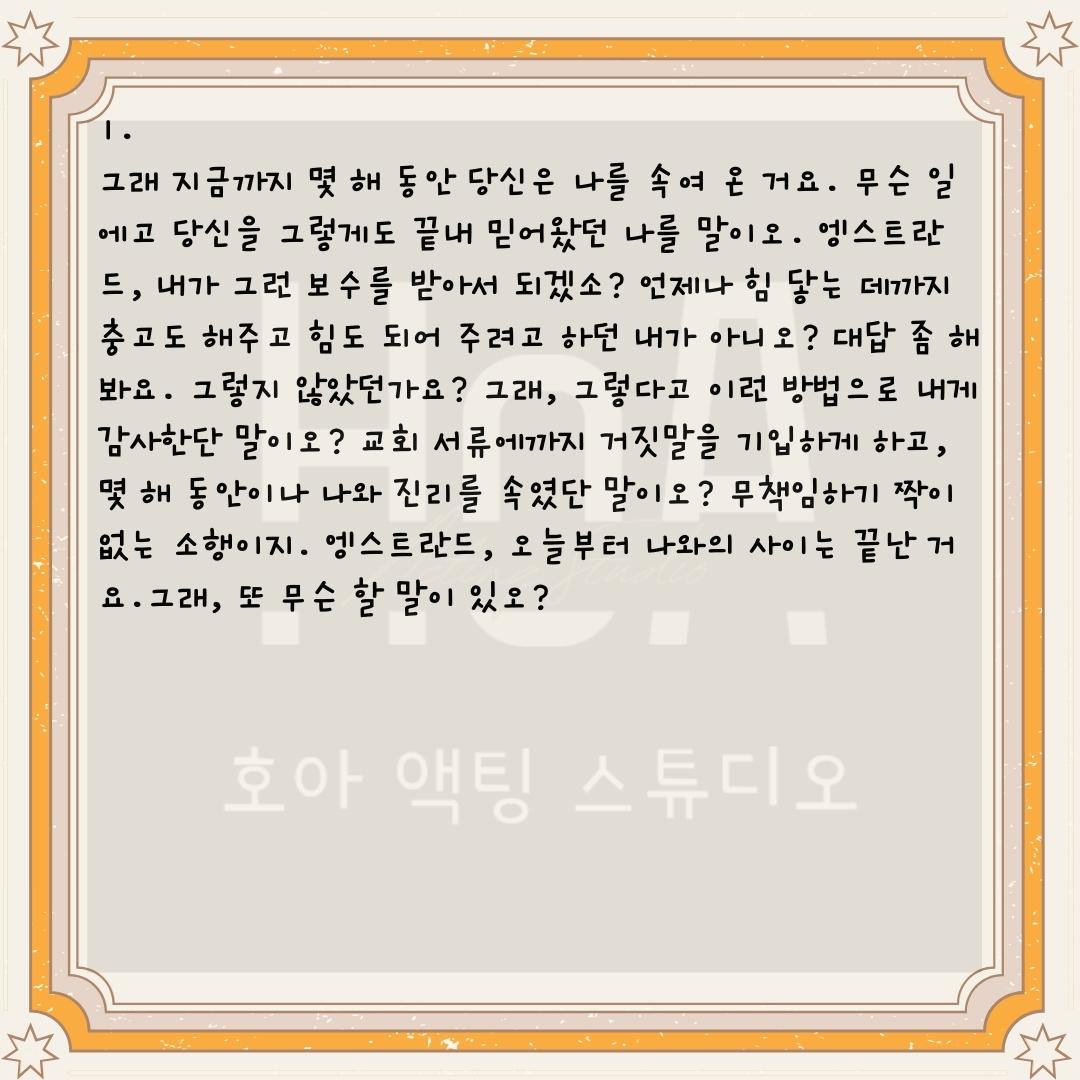 1.
그래 지금까지 몇 해 동안 당신은 나를 속여 온 거요. 무슨 일
에고 당신을 그렇게도 끝내 믿어왔던 나를 말이오. 엥스트란
드, 내가 그런 보수를 받아서 되겠소? 언제나 힘 닿는 데까지
충고도 해주고 힘도 되어 주려고 하던 내가 아니오? 대답 좀 해
봐요. 그렇지 않았던가요? 그래, 그렇다고 이런 방법으로 내게
감사한단 말이오? 교회 서류에까지 거짓말을 기입하게 하고,
몇 해 동안이나 나와 진리를 속였단 말이오? 무책임하기 짝이
없는 소행이지. 엥스트란드, 오늘부터 나와의 사이는 끝난 거
요.그래, 또 무슨 할 말이 있오?
HoA
Acting Studio
호아 액팅 스튜디오